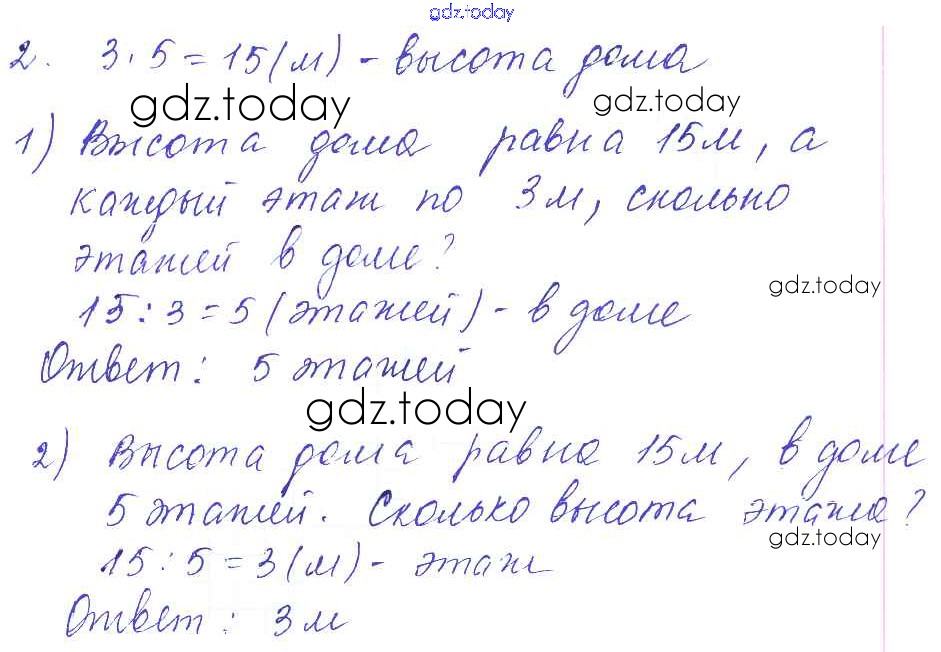 gdz.today
2. 3·5=15(м) - высота дома
gdz.today gdz.today
1) Высота дома равна 15м, а
каждый этаж по 3м, сколько
этажей в доме?
gdz.today
15:3=5(этажей) - в доме
Ответ: 5 этажей
gdz.today
2) Высота дома равна 15м, в доме
5 этажей. Сколько высота этажа?
gdz.today
15:5=3(м) - этаж
Ответ: 3м